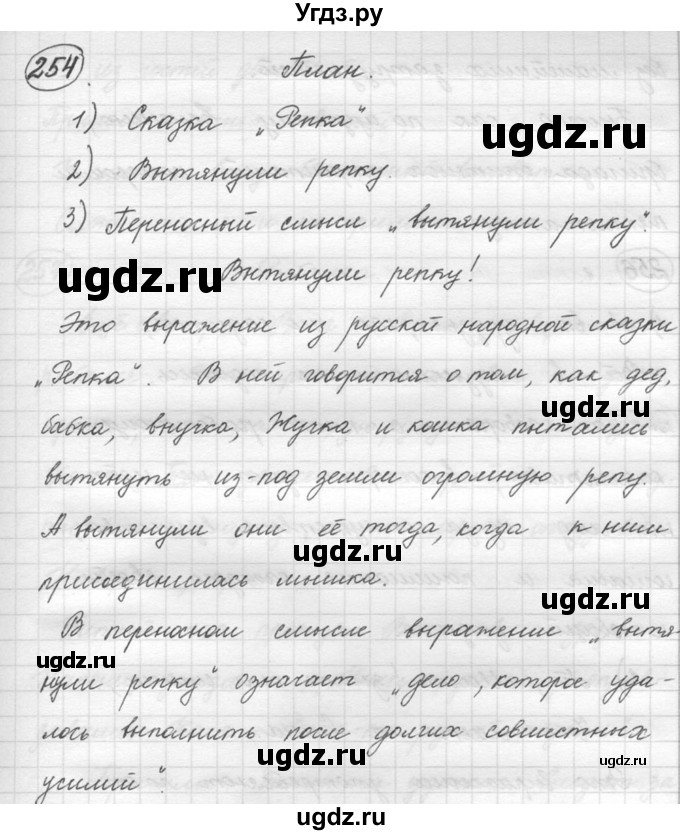 Угдз.ру
254. План.
1) Сказка „Репка"
2) Вытянули репку.
ugdz.ru
3) Переносный смысл „вытянули репку".
ugdz.ru
Вытянули репку!
Это выражение из русской народной сказки
„Репка". В ней говорится о том, как дед,
ugdz.ru
бабка, внучка, Жучка и кошка пытались
вытянуть из-под земли огромную репу.
А вытянули они её тогда, когда к ним
ugdz.ru
присоединилась мышка.
ugdz.ru
В переносном смысле выражение „вытя-
ugdz.ru
нули репку" означает „дело, которое уда-
лось выполнить после долгих совместных
ugdz.ru
ugdz.ru
усилий".
ugdz.ru